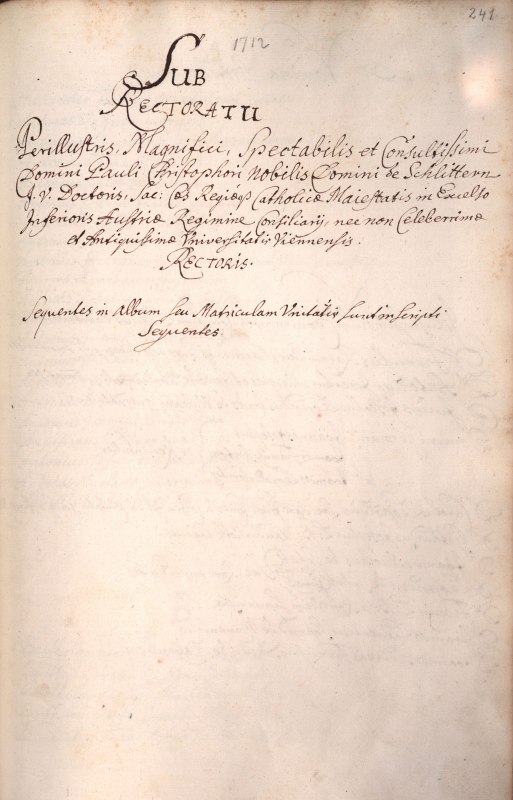 1712
241
SUB
RECTORATU
Perillustris, Magnifici, Spectabilis et Consultissimi
Domini Pauli Christophori Nobilis Domini de Schlittern
J. V. Doctoris, Sac: Cæs Regiæqȝ Catholicæ Maiestatis in Excelso
Inferioris Austriæ Regimine Consiliarij, nec non Celeberrimæ
et Antiquissimæ Vniversitatis Viennensis.
RECTORIS.
Sequentes in Album seu Matriculam Vnitatis sunt inscripti
Sequentes.